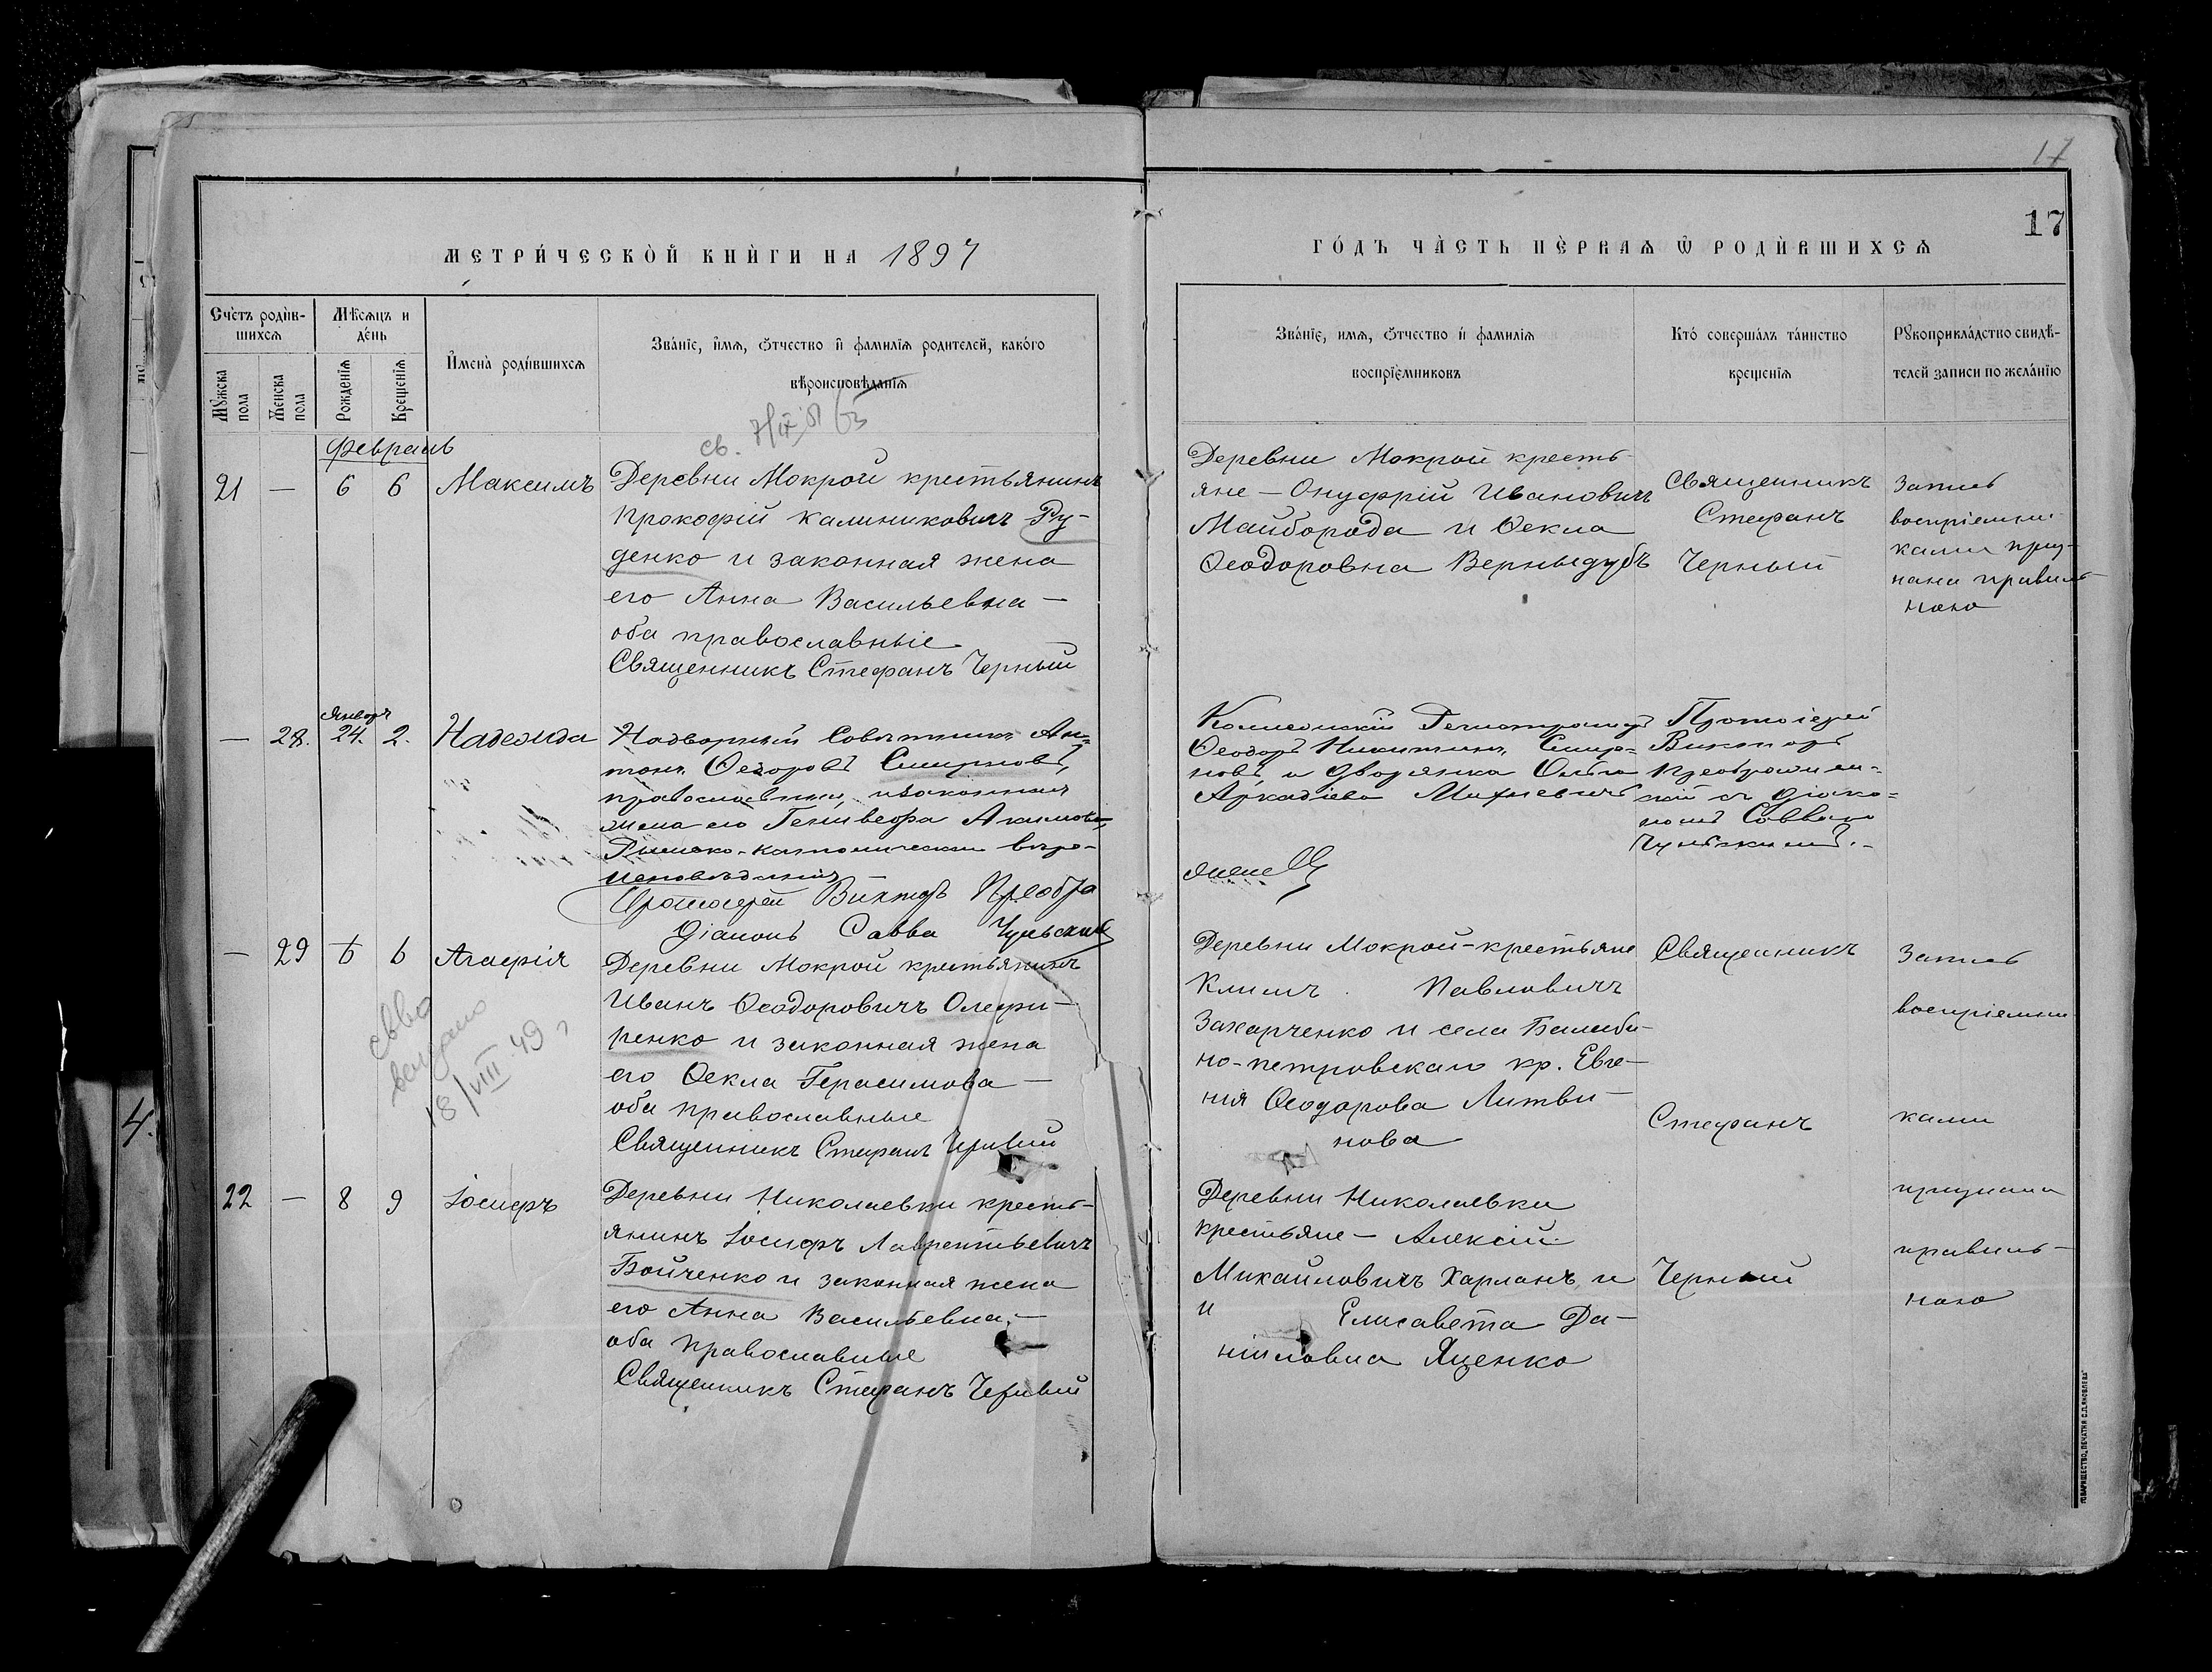 17
17
МЕТРИ́ЧЕСКОЙ КНИ́ГИ НА 1897
ГО́ДЪ ЧА́СТЬ ПЕ́РВАѦ Ѿ РОДИ́ВШИХСѦ
Сче́тъ роди́в-
шихсѧ
Мꙋжска
пола
Женска
пола
Мѣ́сѧцъ и
де́нь
Рожденїѧ
Крещенїѧ
И҆мена̀ роди́вшихсѧ
Зва́нїе, и҆́мѧ, ѻ҆́тчество и҆ фамилїѧ родителей, како́го
вѣроисповѣданїѧ
Зва́нїе, имѧ, ѻ҆́тчество и҆ фамилїѧ
воспрїе́мниковъ
Кто́ соверша́лъ та́инство
крещенїѧ
Рꙋкоприкла́дство свидѣ́-
телей записи по жела́нїю
св.
Февраль
21 — 6 6 Максимъ
Деревни Мокрой крестьянинъ
Прокофій Калиниковичъ Ру-
денко и законная жена
его Анна Васильевна —
оба православные
Священникъ Стефанъ Черный
Деревни Мокрой кресть-
яне — Онуфрій Ивановичъ
Майборода и Ѳекла
Ѳеодоровна Верныдубъ
Священникъ
Стефанъ
Черный
Запись
воспріемни-
ками приз-
нана правиль-
ною
Январь
— 28. 24. 2. Надежда
Надворный Совѣтникъ Ан-
тонъ Ѳедоровъ Смирновъ,
православный, и законная
жена его Геновефа Акимова,
Римско-католическаго вѣро-
исповѣданія
Протоіерей Викторъ Преобра
Діаконъ Савва Чульскій
Коллежскій Регистраторъ
Ѳеодоръ Никитинъ Смир-
новъ и дворянка Ольга
Аркадіева Михневичъ
Протоіерей
Викторъ
Преображен-
скій съ діако-
номъ Саввою
Чульскимъ.
— 29 6 6 Агафія
свво
выдано
18/VIII 49 г
Деревни Мокрой крестьянинъ
Иванъ Ѳеодоровичъ Олефи-
ренко и законная жена
его Ѳекла Герасимова —
оба православные
Священникъ Стефанъ Черный
Деревни Мокрой — крестьяне
Климъ Павловичъ
Захарченко и села Балаби-
но-петровскаго кр. Евге-
нія Ѳеодорова Литви-
нова
Священникъ
Стефанъ
Черный
Запись
воспріемни-
ками
признана
правиль-
ною
22 — 8 9 Іосифъ
Деревни Николаевки кресть-
янинъ Іосифъ Лаврентьевичъ
Бойченко и законная жена
его Анна Васильевна —
оба православные
Священникъ Стефанъ Черный
Деревни Николаевки
крестьяне — Алексій
Михайловичъ Харланъ и
и Елисавета Да-
ніиловна Яценко
4.